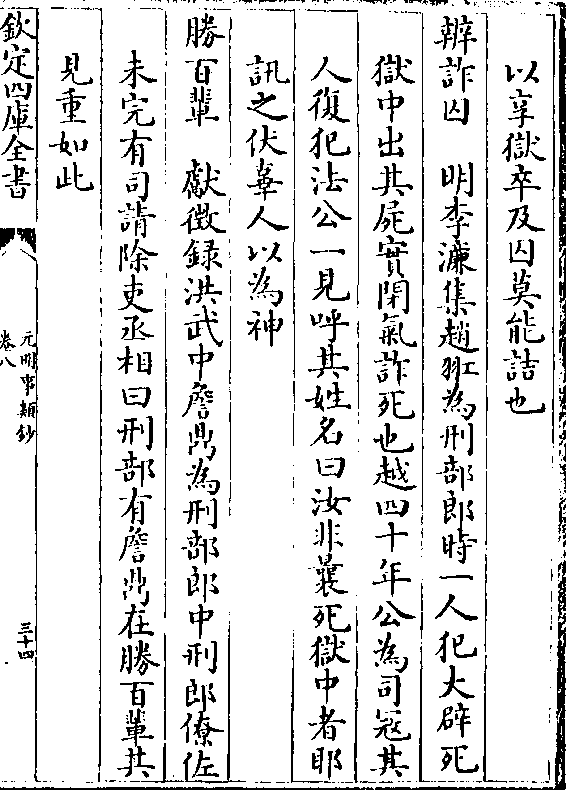 以享獄卒及囚莫能詰也
辧詐囚　明李濂集趙羾為刑部郎時一人犯大辟死
獄中出其屍實閉氣詐死也越四十年公為司寇其
人復犯法公一見呼其姓名曰汝非曩死獄中者耶
訊之伏辜人以為神
勝百輩　獻徴録洪武中詹鼎為刑部郎中刑郎僚佐
未完有司請除吏丞相曰刑部有詹鼎在勝百輩其
見重如此
欽定四庫全書
元明事類鈔
卷八
三十四